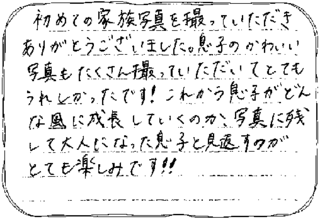 初めての家族写真を撮っていただき
ありがとうございました。息子のかわいい
写真もたくさん撮っていただいてとても
うれしかったです！これから息子がどん
な風に成長していくのか、写真に残
して大人になった息子と見返すのが
とても楽しみです!!